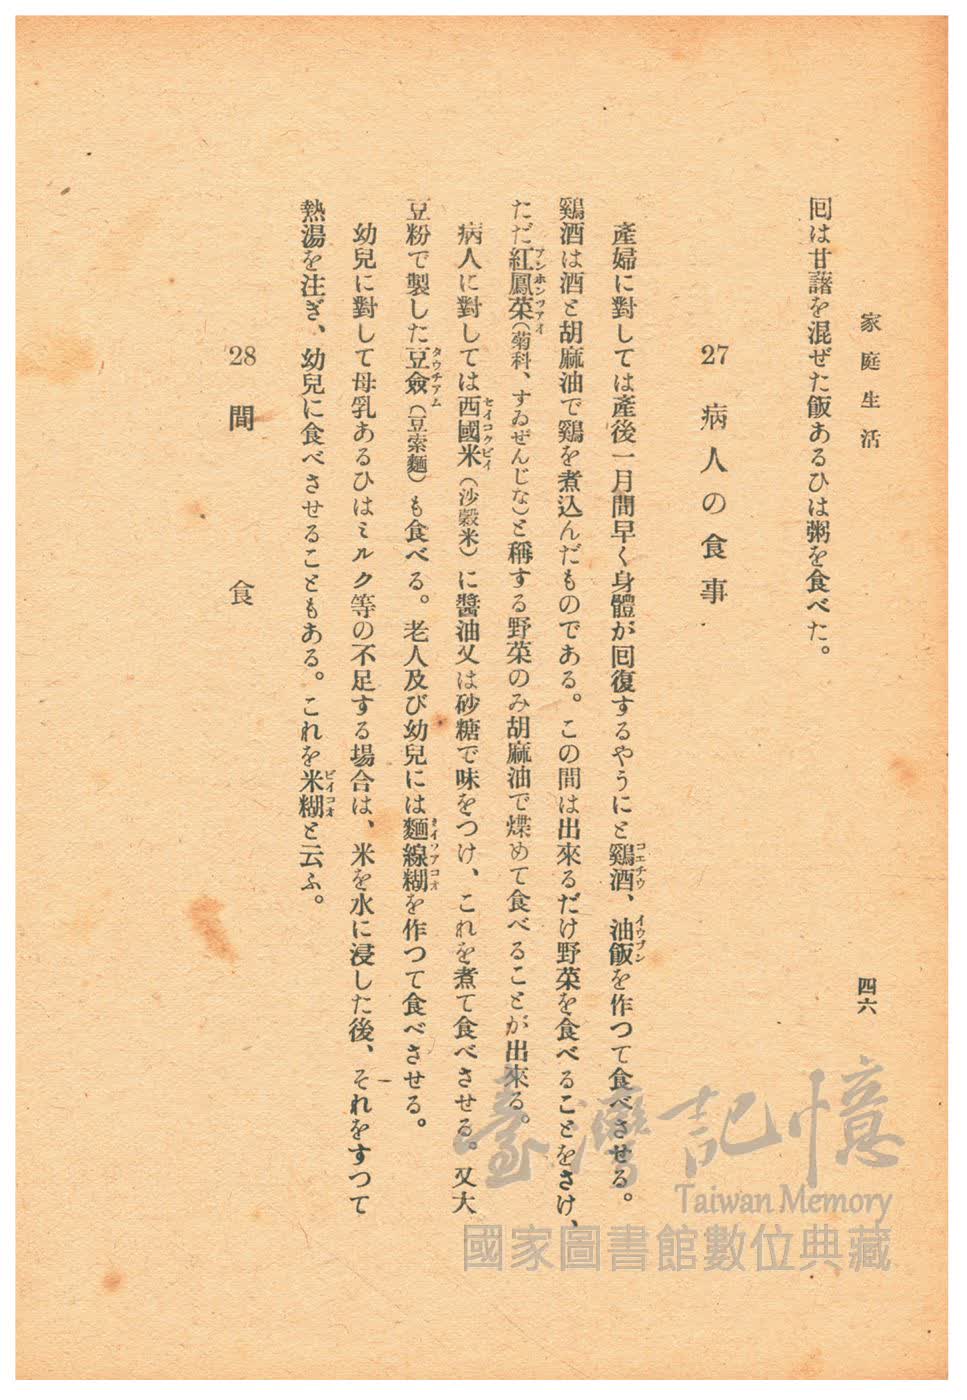 家庭生活
四六
囘は甘藷を混ぜた飯あるひは粥を食べた。
27 病人の食事
產婦に對しては產後一月間早く身體が囘復するやうにと鷄酒、油飯を作つて食べさせる。
コエチウ
イウプン
鷄酒は酒と胡麻油で鷄を煮込んだものである。この間は出來るだけ野菜を食べることをさけ、
ただ紅鳳菜（菊科、すゐぜんじな）と稱する野菜のみ胡麻油で煠めて食べることが出來る。
アンホンツアイ
病人に對しては西國米（沙穀米）に醬油又は砂糖で味をつけ、これを煮て食べさせる。又大
セイコクビイ
豆粉で製した豆僉（豆索麵）も食べる。老人及び幼兒には麵線糊を作つて食べさせる。
タウチアム
幼兒に對して母乳あるひはミルク等の不足する場合は、米を水に浸した後、それをすつて
熱湯を注ぎ、幼兒に食べさせることもある。これを米糊と云ふ。
ビイコオ
28 間食
臺灣記憶
Taiwan Memory
國家圖書館數位典藏